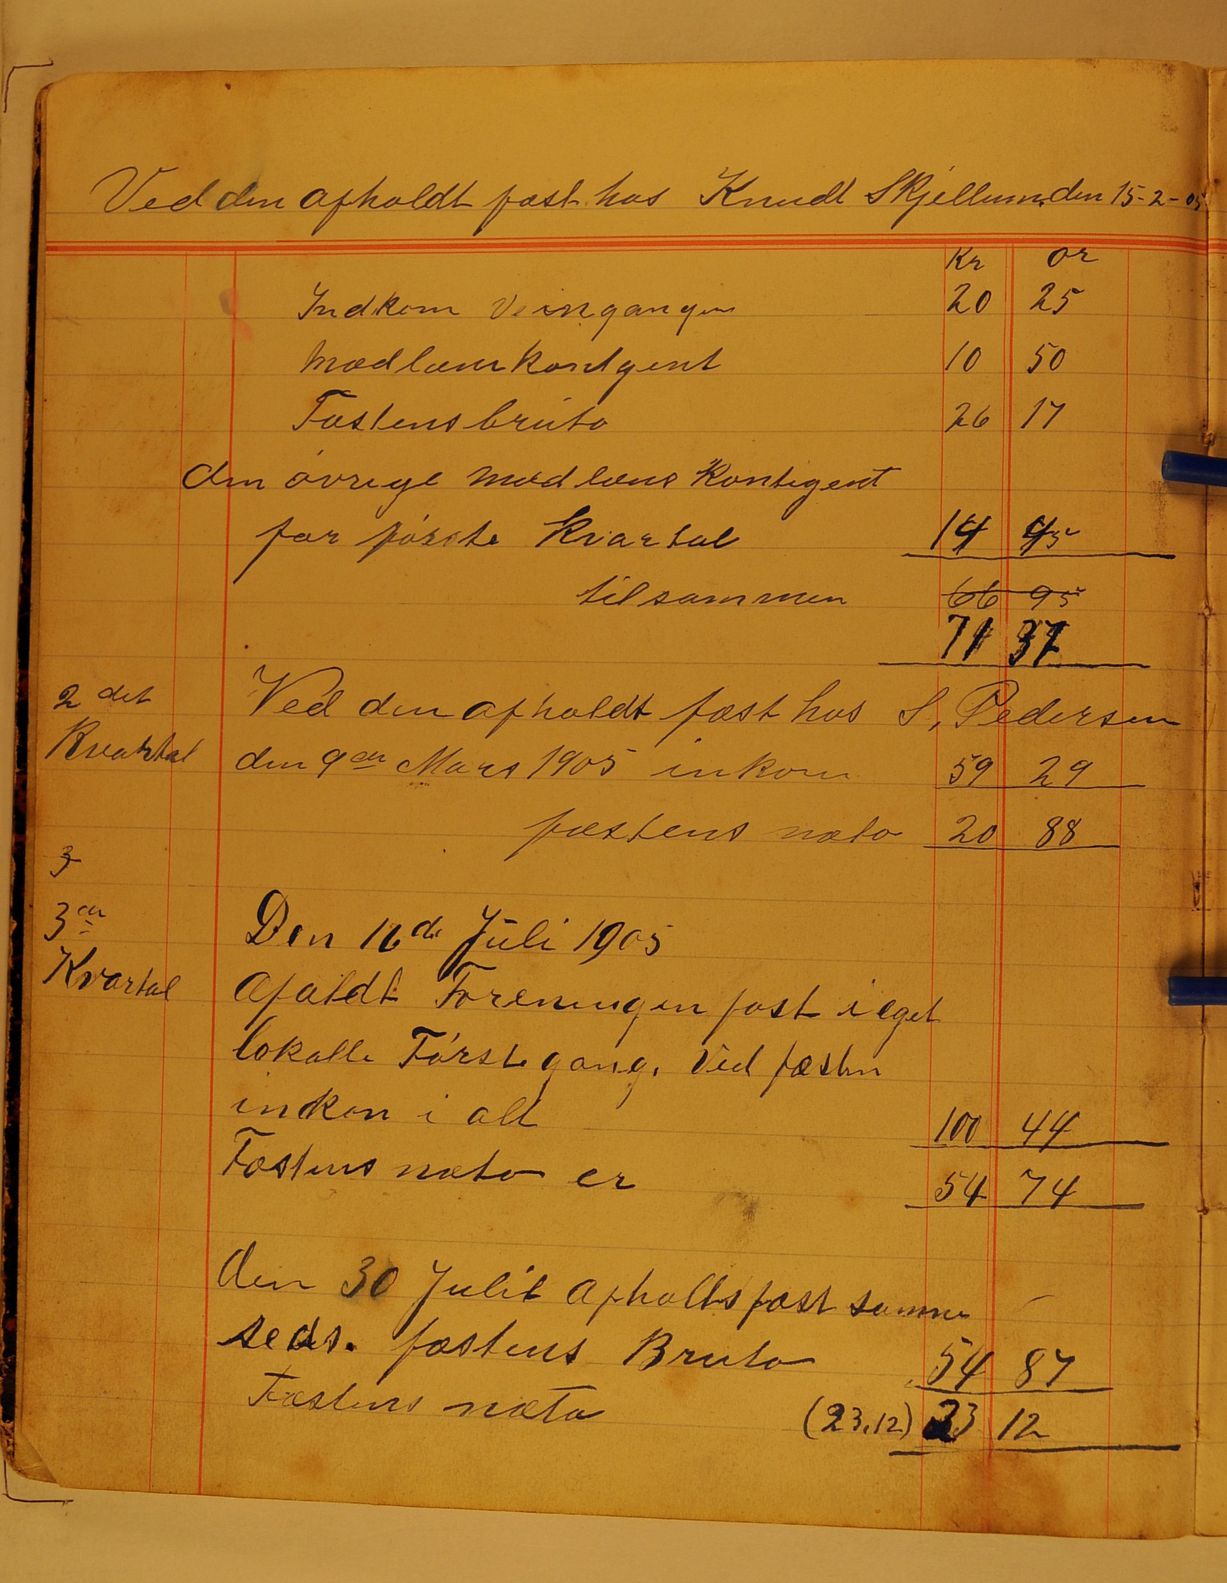 Ved den afholdt fæst hos Knudt Skjellum den 15-2-05
Kr ör
Indkom Veingangen 20 25
Mædlemskontgent 10 50
Fæstens brúto 26 17
den övrige mædlems Kontigent
for förste Kvartal 14 45
tilsammen 66 95
71 37
2 det Kvartal
Ved den afholdt fæst hos S, Pedersen
den 9en Mars 1905 inkom 59 29
fæstens næto 20 88
3
3en Kvartal
Den 16de Júli 1905
afoldt Foreningen fæst i eget
lokalle Förstegang. Ved fæsten
inkon i alt 100 44
Fæstens næto er 54 74
den 30 Julit afholts fæst samme
seds. fæstens Bruto 54 87
Fæstens næto (23,12) 23 12